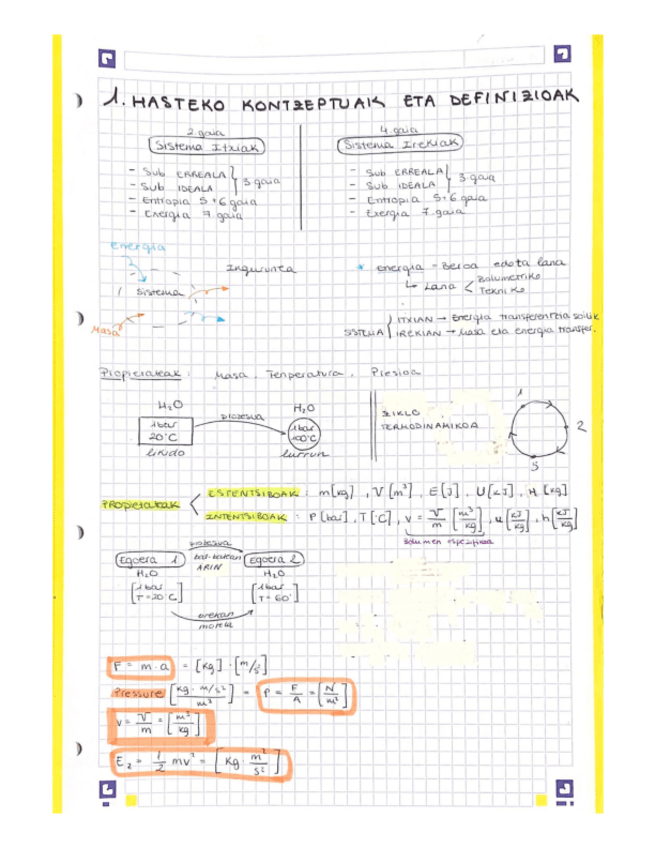 1. HASTEKO KONTZEPTUAK ETA DEFINIZIOAK
2.gaia
Sistema Itxiak
- Sub ERREALA
- Sub IDEALA
3.gaia
- Entropia 5+6 gaia
- Exergia 7.gaia
4.gaia
Sistema Irekiak
- Sub ERREALA
- Sub IDEALA
3.gaia
- Entropia 5+6.gaia
- Exergia 7.gaia
energia
Ingurunea
Sistema
Masa
* energia - Beroa edota lana
↳ Lana < Bolumetriko
Tekniko
SISTEMA { ITXIAN → Energia transferentzia soilik
IREKIAN → Masa eta energia transfer.
Propietateak : Masa, Tenperatura, Presioa
H₂O
1bar
20°C
likido
prozesua
H₂O
1bar
100°C
lurrun
ZIKLO
TERMODINAMIKOA
1
2
3
PROPIETATEAK
ESTENTSIBOAK : m[kg], V[m³], E[J], U[kJ], H[kg]
INTENTSIBOAK : P[bar], T[°C], v = V/m [m³/kg], u[kJ/kg], h[kJ/kg]
Bolumen espezifikoa
prozesua
Egoera 1
bat-batean
ARIN
Egoera 2
H₂O
H₂O
[1bar
T=20°C]
[1bar
T=60°]
orekan
MOTEL
F = m·a = [kg]·[m/s²]
Pressure [kg·m/s²/m³] = P = F/A = [N/m²]
v = V/m = [m³/kg]
E₂ = 1/2 mv² = [kg·m²/s²]